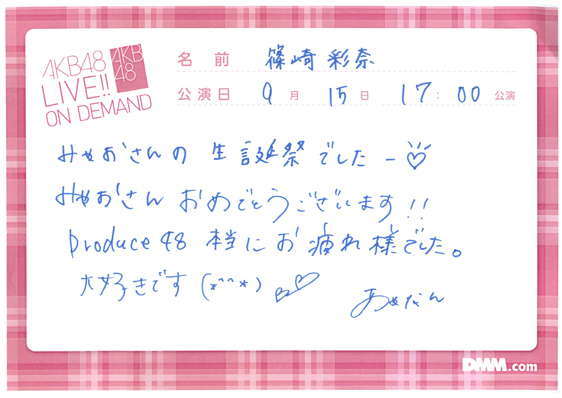 AKB48
LIVE!!
ON DEMAND
AKB
48
名前 篠崎彩奈
公演日 9月15日 17:00公演
みゃおさんの 生誕祭でしたー♡
みゃおさん おめでとうございます!!
produce48 本当にお疲れ様でした。
大好きです (*^^*) ♡♡
あやなん
DMM.com